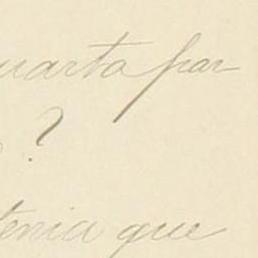 uarta par
?
tenia que